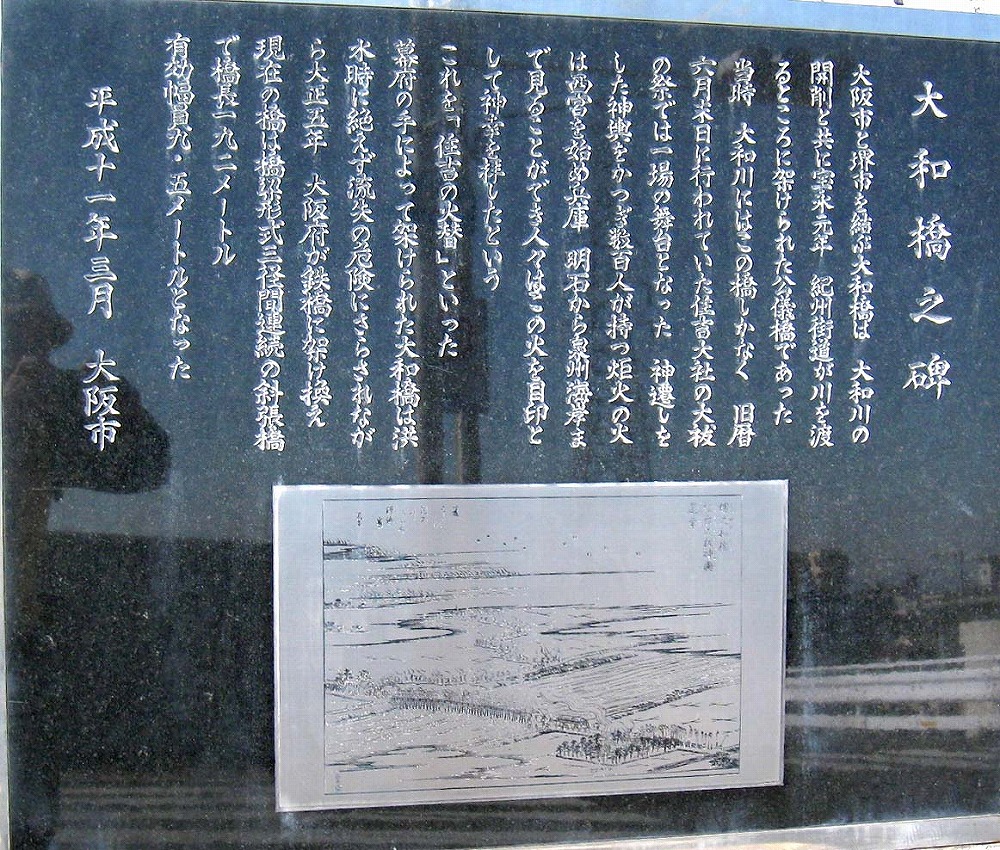 大和橋之碑
大阪市と堺市を結ぶ大和橋は　大和川の
開削と共に宝永元年　紀州街道が川を渡
るところに架けられた公儀橋であった
当時　大和川にはこの橋しかなく　旧暦
六月末日に行われていた住吉大社の大祓
の祭では一場の舞台となった　神遷しを
した神輿をかつぎ数百人が持つ炬火の火
は西宮を始め兵庫　明石から泉州海岸ま
で見ることができ人々はこの火を目印と
して神幸を拝したという
これを「住吉の火替」といった
幕府の手によって架けられた大和橋は洪
水時に絶えず流失の危険にさらされなが
ら大正五年　大阪府が鉄橋に架け換え
現在の橋は橋梁形式三径間連続の斜張橋
で橋長一九二メートル
有効幅員九・五メートルとなった
平成十一年三月　大阪市